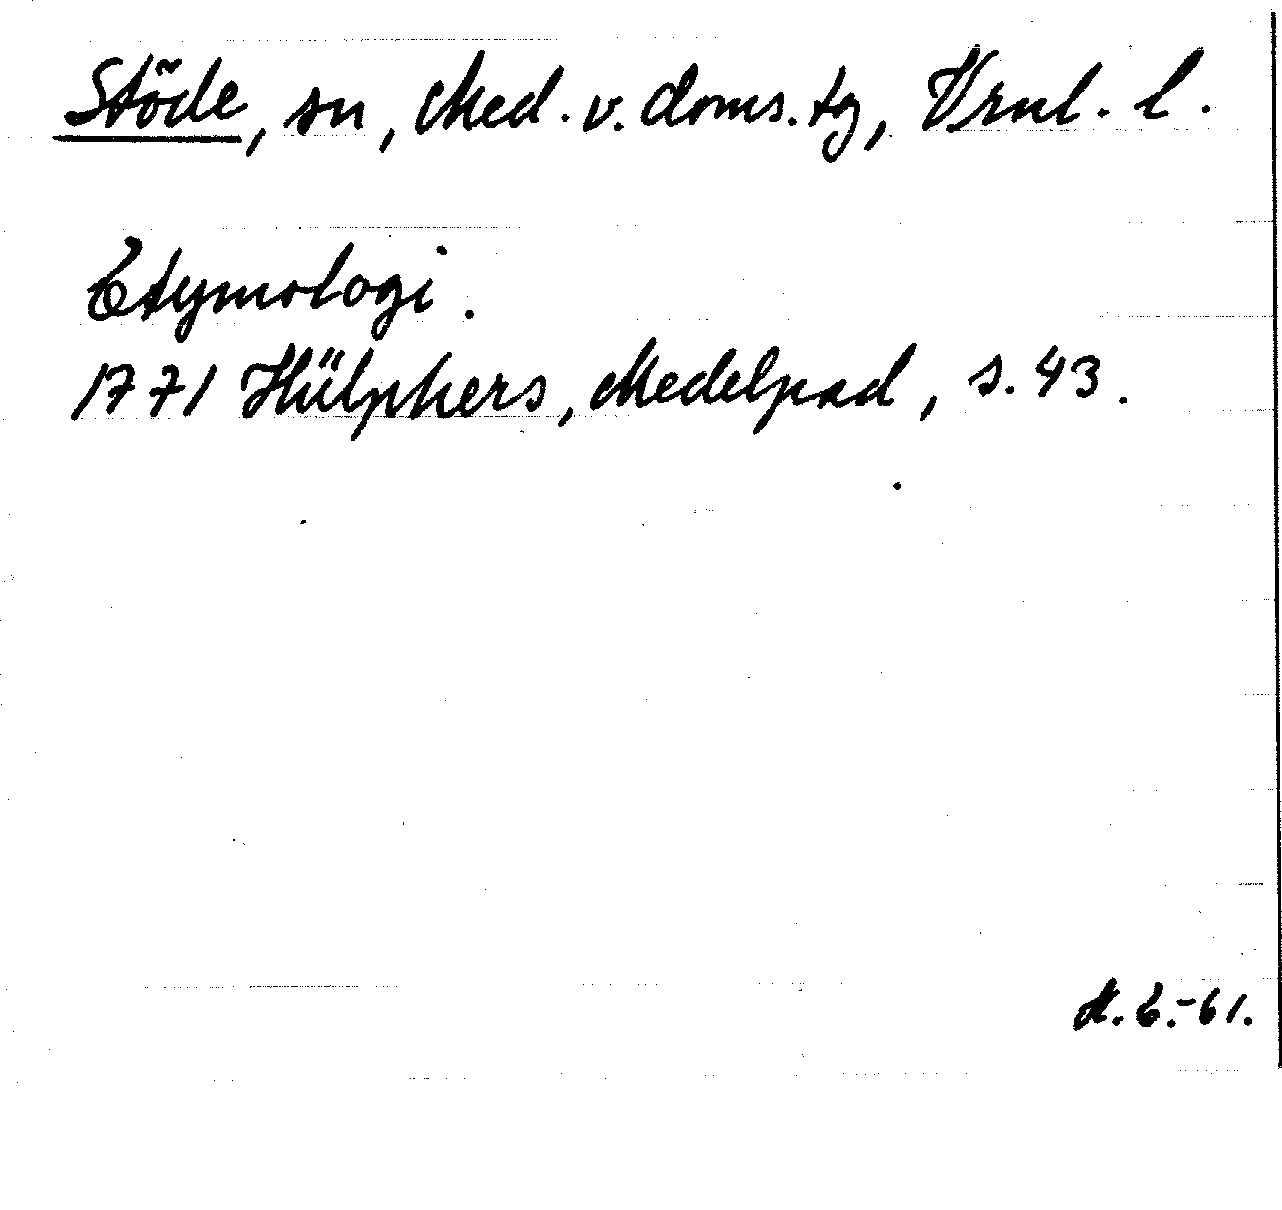 Stöde, sn, Med. v. doms. tg, Vrnl. l.
Etymologi.
1771 Hülphers, Medelpad, s. 43.
E.-61.